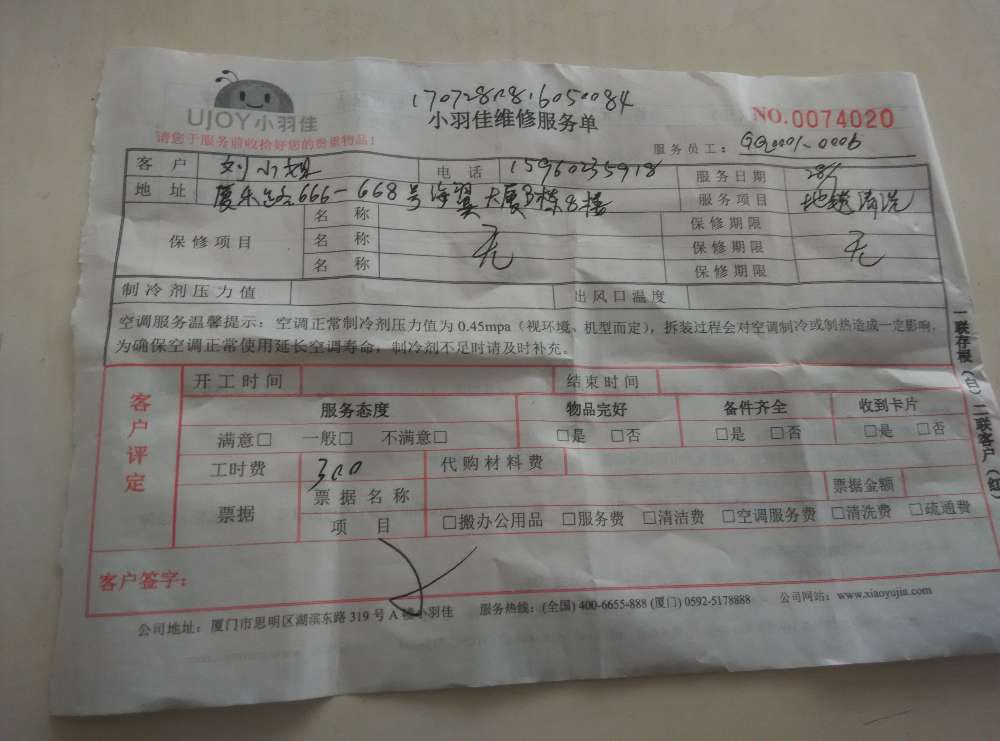 UJOY小羽佳
170728
小羽佳维修服务单
NO.0074020
请您于服务前收拾好您的贵重物品!
服务员工:
客户 刘小姐 电话 15960235918 服务日期
地址 厦禾路666-668号海翼大厦B栋8楼 服务项目 地毯清洗
保修项目 名称 无 保修期限 无
名称 保修期限
名称 保修期限
制冷剂压力值 出风口温度
空调服务温馨提示:空调正常制冷剂压力值为 0.45mpa(视环境、机型而定),拆装过程会对空调制冷或制热造成一定影响,
为确保空调正常使用延长空调寿命,制冷剂不足时请及时补充。
客户评定 开工时间 结束时间
服务态度 物品完好 备件齐全 收到卡片
满意□ 一般□ 不满意□ □是 □否 □是 □否 □是 □否
工时费 300 代购材料费
票据 票据名称 票据金额
项目 □搬办公用品 □服务费 □清洁费 □空调服务费 □清洗费 □疏通费
客户签字:
公司地址:厦门市思明区湖滨东路 319 号 A 楼小羽佳 服务热线:(全国) 400-6655-888 (厦门) 0592-5178888 公司网站:www.xiaoyujia.com
一联存根(白)二联客户(红)